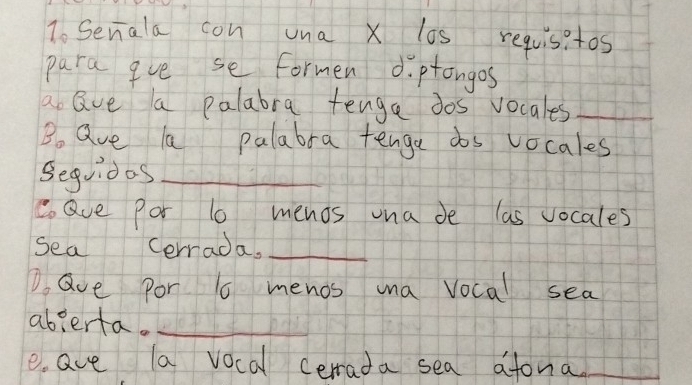 1. Señala con una X los requisitos
para que se formen diptongos
a. Que la palabra tenga dos vocales
B. Que la palabra tenga dos vocales
seguidas
C. Que por lo menos una de las vocales
sea cerrada.
D. Que por lo menos una vocal sea
abierta.
e. Que la vocal cerrada sea átona.